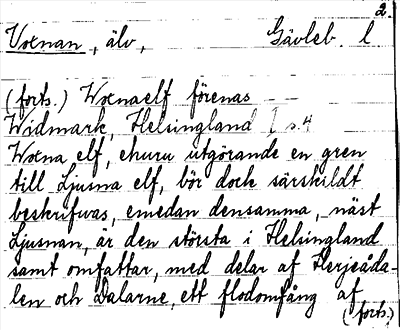 2.
Voxnan, älv, Gävleb. l
(forts.) Woxnaelf förenas
Widmark, Helsingland I s.4
Woxna elf, ehuru utgörande en gren
till Ljusna elf, bör dock särskildt
beskrifwas, emedan densamma, näst
Ljusnan, är den största i Helsingland
samt omfattar, med delar af Herjeåda-
len och Dalarne, ett flodomfång af
(forts.)